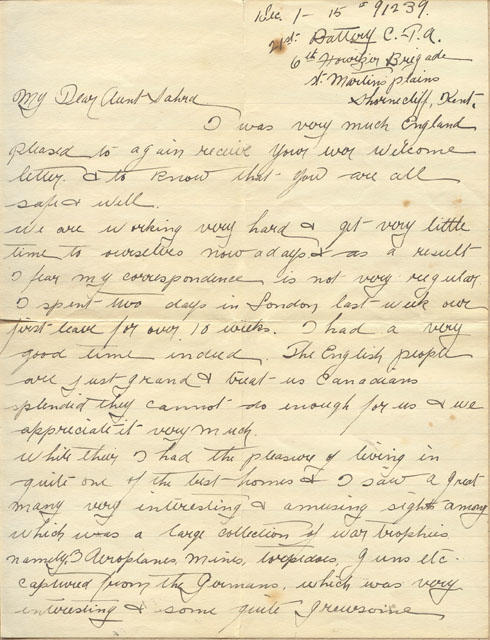 Dec. 1 - 15 # 91239.
21st Battery C.F.A.
6th Howitzer Brigade
St. Martins plains
Shorncliff, Kent.
My Dear Aunt Sahra England
I was very much
pleased to again receive your welcome
letter & to know that you are all
safe & well.
We are working very hard & get very little
time to ourselves now adays & as a result
I fear my correspondence is not very regular
I spent two days in London last week our
first leave for over 10 weeks. I had a very
good time indeed. The English people
are just grand & treat us Canadians
splendid they cannot do enough for us & we
appreciate it very much.
While they I had the pleasure of living in
quite one of the best homes & I saw a great
many very interesting & amusing sights among
which was a large collection of war trophies
namely, 3 Aeroplanes, mines, torpedoes, guns etc.
captured from the Germans, which was very
interesting & some quite grewsome